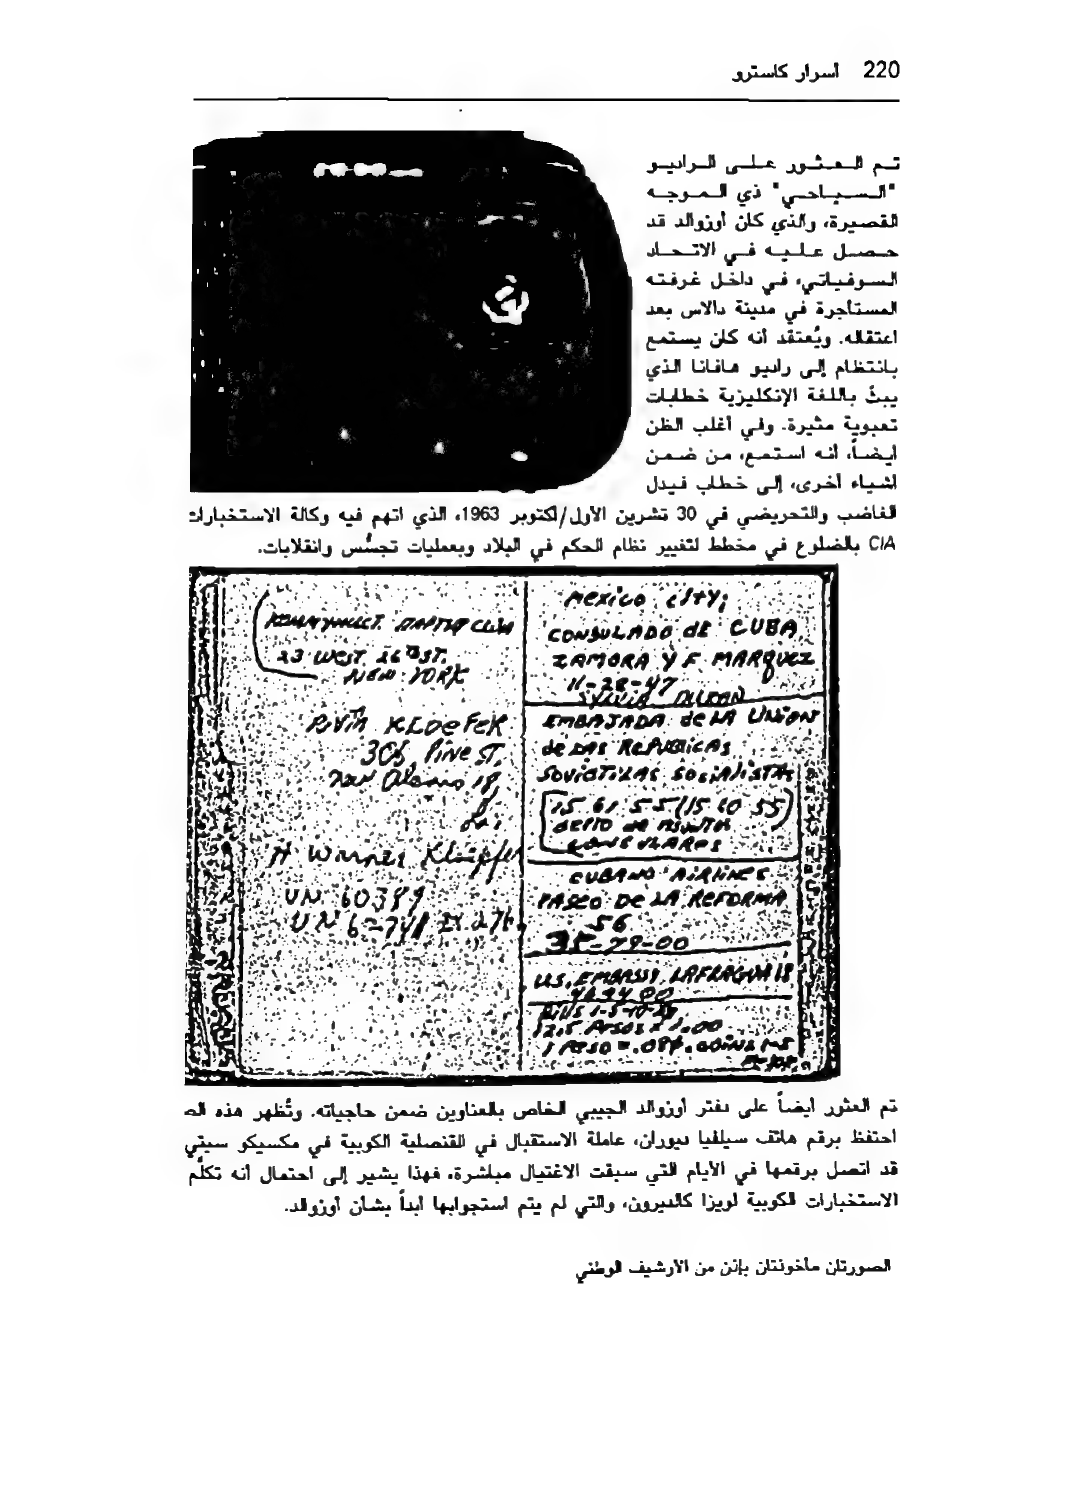 220 أسرار كاسترو
تم العثور على الراديو
"السياحي" ذي الموجه
القصيرة، والذي كان أوزوالد قد
حصل عليه في الاتحاد
السوفياتي، في داخل غرفته
المستأجرة في مدينة دالاس بعد
اعتقاله. ويُعتقد أنه كان يستمع
بانتظام إلى راديو هافانا الذي
يبثّ باللغة الإنكليزية خطابات
تعبوية مثيرة. وفي أغلب الظن
أيضاً، أنه استمع، من ضمن
أشياء أخرى، إلى خطاب فيدل
الغاضب والتحريضي في 30 تشرين الأول/أكتوبر 1963، الذي اتهم فيه وكالة الاستخبارات
CIA بالضلوع في مخطط لتغيير نظام الحكم في البلاد وبعمليات تجسُّس وانقلابات.
23 WEST 26 ST.
NEW YORK
RUTH KLOEPFER
305 Pine ST.
New Orleans 18,
La.
UN. 60389
MEXICO CITY;
CONSULADO de CUBA
ZAMORA Y F. MARQUEZ
11-28-47
SYLVIA DURAN
EMBAJADA de LA UNION
de LAS REPUBLICAS
SOVIOTICAS SOCIALISTAS
15 61 55 (15 60 55)
DEPTO
CONSULARES
CUBANO AIRLINES
PASEO DE LA REFORMA
56
35-79-00
U.S. EMBASSY, LAFRAGUA 18
12.5 PESOS = 1.00
1 PESO = .08¢
تم العثور أيضاً على دفتر أوزوالد الجيبي الخاص بالعناوين ضمن حاجياته. وتُظهر هذه الص
احتفظ برقم هاتف سيلفيا ديوران، عاملة الاستقبال في القنصلية الكوبية في مكسيكو سيتي
قد اتصل برقمها في الأيام التي سبقت الاغتيال مباشرة، فهذا يشير إلى احتمال أنه تكلَّم
الاستخبارات الكوبية لويزا كالديرون، والتي لم يتم استجوابها أبداً بشأن أوزوالد.
الصورتان مأخوذتان بإذن من الأرشيف الوطني